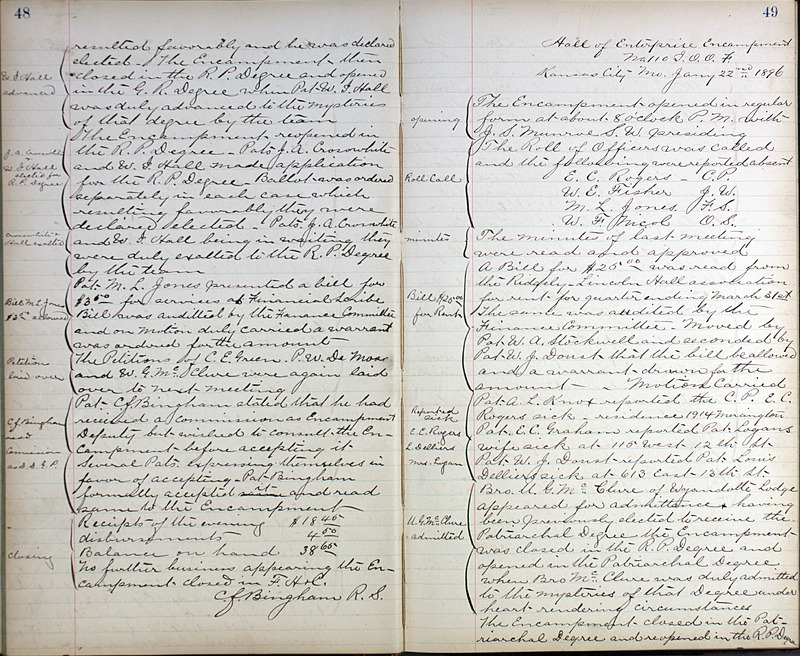 48
resulted favorably and he was declared
elected - The Encampment then
closed in the R. P. Degree and opened
W. I. Hall
advanced
in the G. R. Degree when Pat. W. I. Hall
was duly advanced to the mysteries
of that degree by the team
The Encampment reopened in
J. A. Cronwhite
W. I. Hall
elected for
R. P. Degree
the R. P. Degree - Pats J. A. Cronwhite
and W. I. Hall made application
for the R. P. Degree - Ballot was ordered
separately in each case which
resulting favorably they were
declared elected - Pats. J. A. Cronwhite
Hall exalted
and W. I. Hall being in waiting they
were duly exalted to the R. P. Degree
by the team
Bill M. L. Jones
$3.00 allowed
Pat. M. L. Jones presented a bill for
$3.00 for services as Financial Scribe
Bill was audited by the Finance Committee
and on motion duly carried a warrant
was ordered for the amount
Petitions
laid over
The Petitions of C. E. Guen. P. W. De Moss
and W. G. Mc Clure were again laid
over to next meeting
C. J. Bingham
read
Commission
as D. D. G. P.
Pat. C. J. Bingham stated that he had
received a Commission as Encampment
Deputy but wished to consult the En-
campment before accepting it
Several Pats. expressing themselves in
favor of accepting - Pat. Bingham
formally accepted and read
same to the Encampment
Receipts of the evening $18.40
disbursements 4.00
Balance on hand 38.65
closing
No further business appearing the En-
campment closed in F. H & C.
C. J. Bingham R. S.
49
Hall of Enterprise Encampment
No 110 I. O. O. F
Kansas City - Mo. Jany 22nd 1896
opening
The Encampment opened in regular
form at about 8 oclock P. M. with
J. S. Munroe S. W. presiding
Roll Call
The Roll of Officers was called
and the following were reported absent
E. C. Rogers - C. P.
W. E. Fisher J. W.
M. L. Jones F. S.
W. F. Nicol O. S.
minutes
The minutes of last meeting
were read and approved
Bill $25.00
for Rent
A Bill for $25.00 was read from
the Ridgely - Lincoln Hall association
for rent for quarter ending March 31st
The same was audited by the
Finance Committee - Moved by
Pat. W. A. Stockwell and seconded by
Pat. W. J. Doust that the bill be allowed
and a warrant drawn for the
amount - Motion Carried
Reported
sick
E. C. Rogers
L. Delliers
Mrs. Logan
Pat. A. L. Knox reported the C. P. E. C.
Rogers sick - residence 1914
Pat. E. C. Graham reported Pat. Logans
wife sick at 110 West 12th St
Pat. W. J. Doust reported Pat. Louis
Delliers sick at 613 East 13th St.
U. G. Mc Clure
admitted
Bro. U. G. Mc Clure of Wyandotte Lodge
appeared for admittance & having
been previously elected to receive the
Patriarchal Degree the Encampment
was closed in the R. P. Degree and
opened in the Patriarchal Degree
when Bro. Mc Clure was duly admitted
to the mysteries of that Degree under
heart-rendering circumstances
The Encampment closed in the Pat-
riarchal Degree and reopened in the R. P. Degree